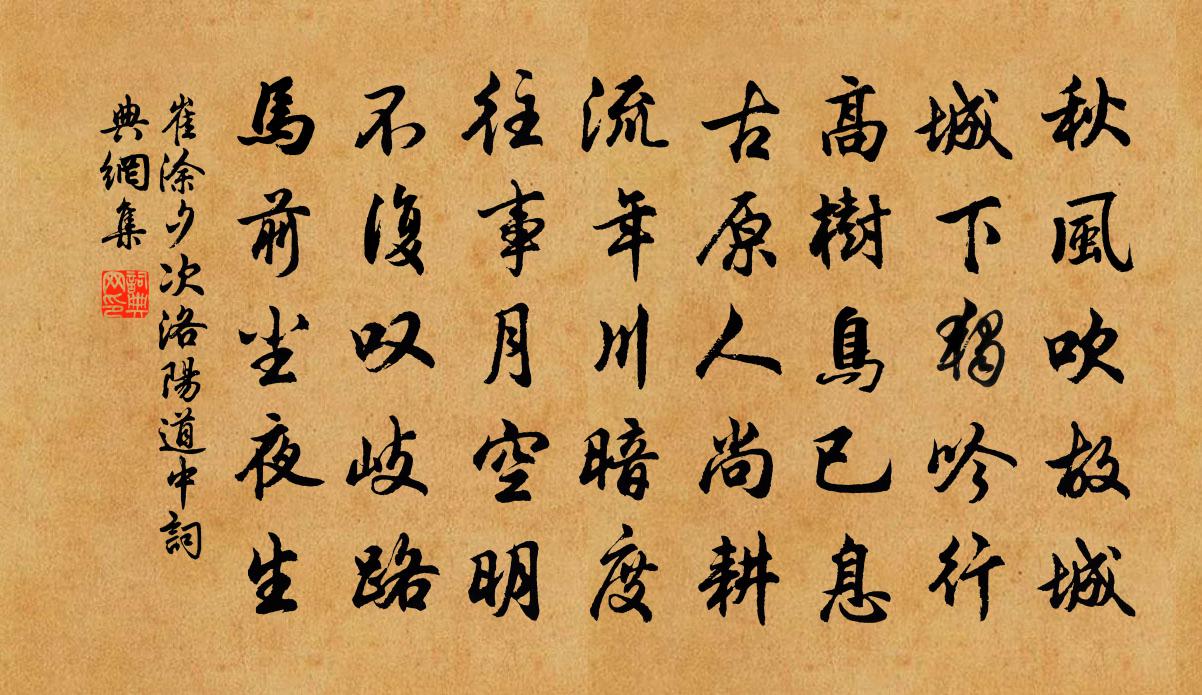 秋風吹故城
城下獨吟行
高樹鳥已息
古原人尚耕
流年川暗度
往事月空明
不復叹岐路
馬前尘夜生
崔涂夕次洛陽道中詞
典網集
詞典
网印